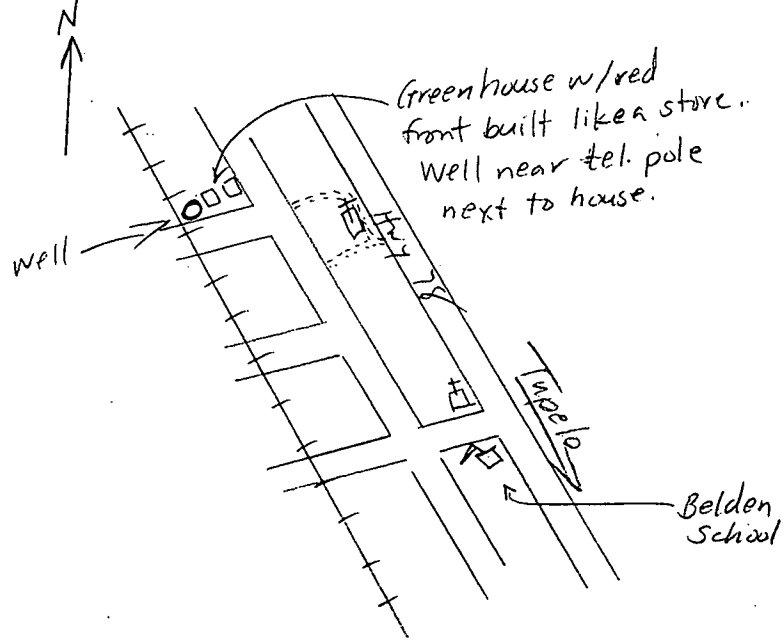 N
Greenhouse w/red
front built like a store.
Well near tel. pole
next to house.
Well
Hwy 78
Tupelo
Belden
School